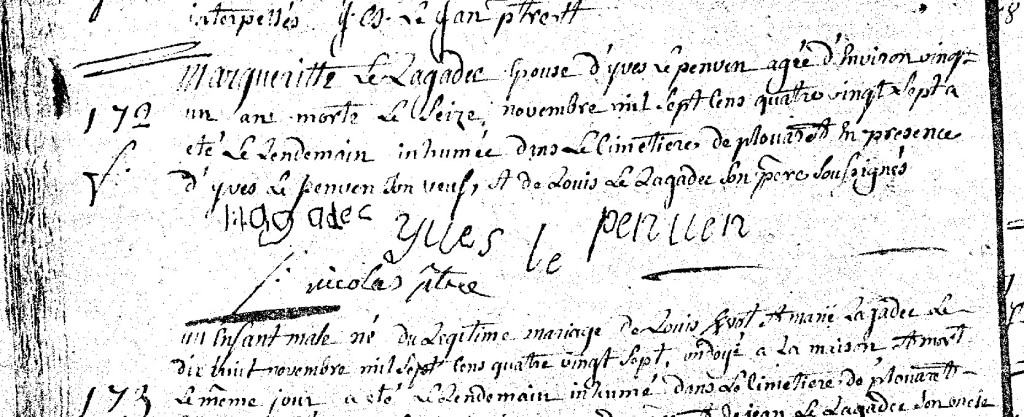 interpellés
Margueritte Le Lagadec Epouse d'yves Le penven agéé d'Environ vingt
172 un ans morte Le Seize novembre mil Sept Cens quatre vingt Sept a
f. eté Le Lendemain inhumée dans Le Cimetiere de plouaret En presence
d'yves Le penven Son veuf, Et de Louis Le Lagadec Son pere Soussignés
lagadec yves le penven
f. nicolas
un Enfant male né du Legitime mariage de Louis Lagadec Le
dix huit novembre mil Sept Cens quatre vingt Sept, ondoyé a La maison Et mort
173 Le même jour a eté Le Lendemain inhumé dans Le Cimetiere de plouaret
de jean Le Lagadec Son oncle